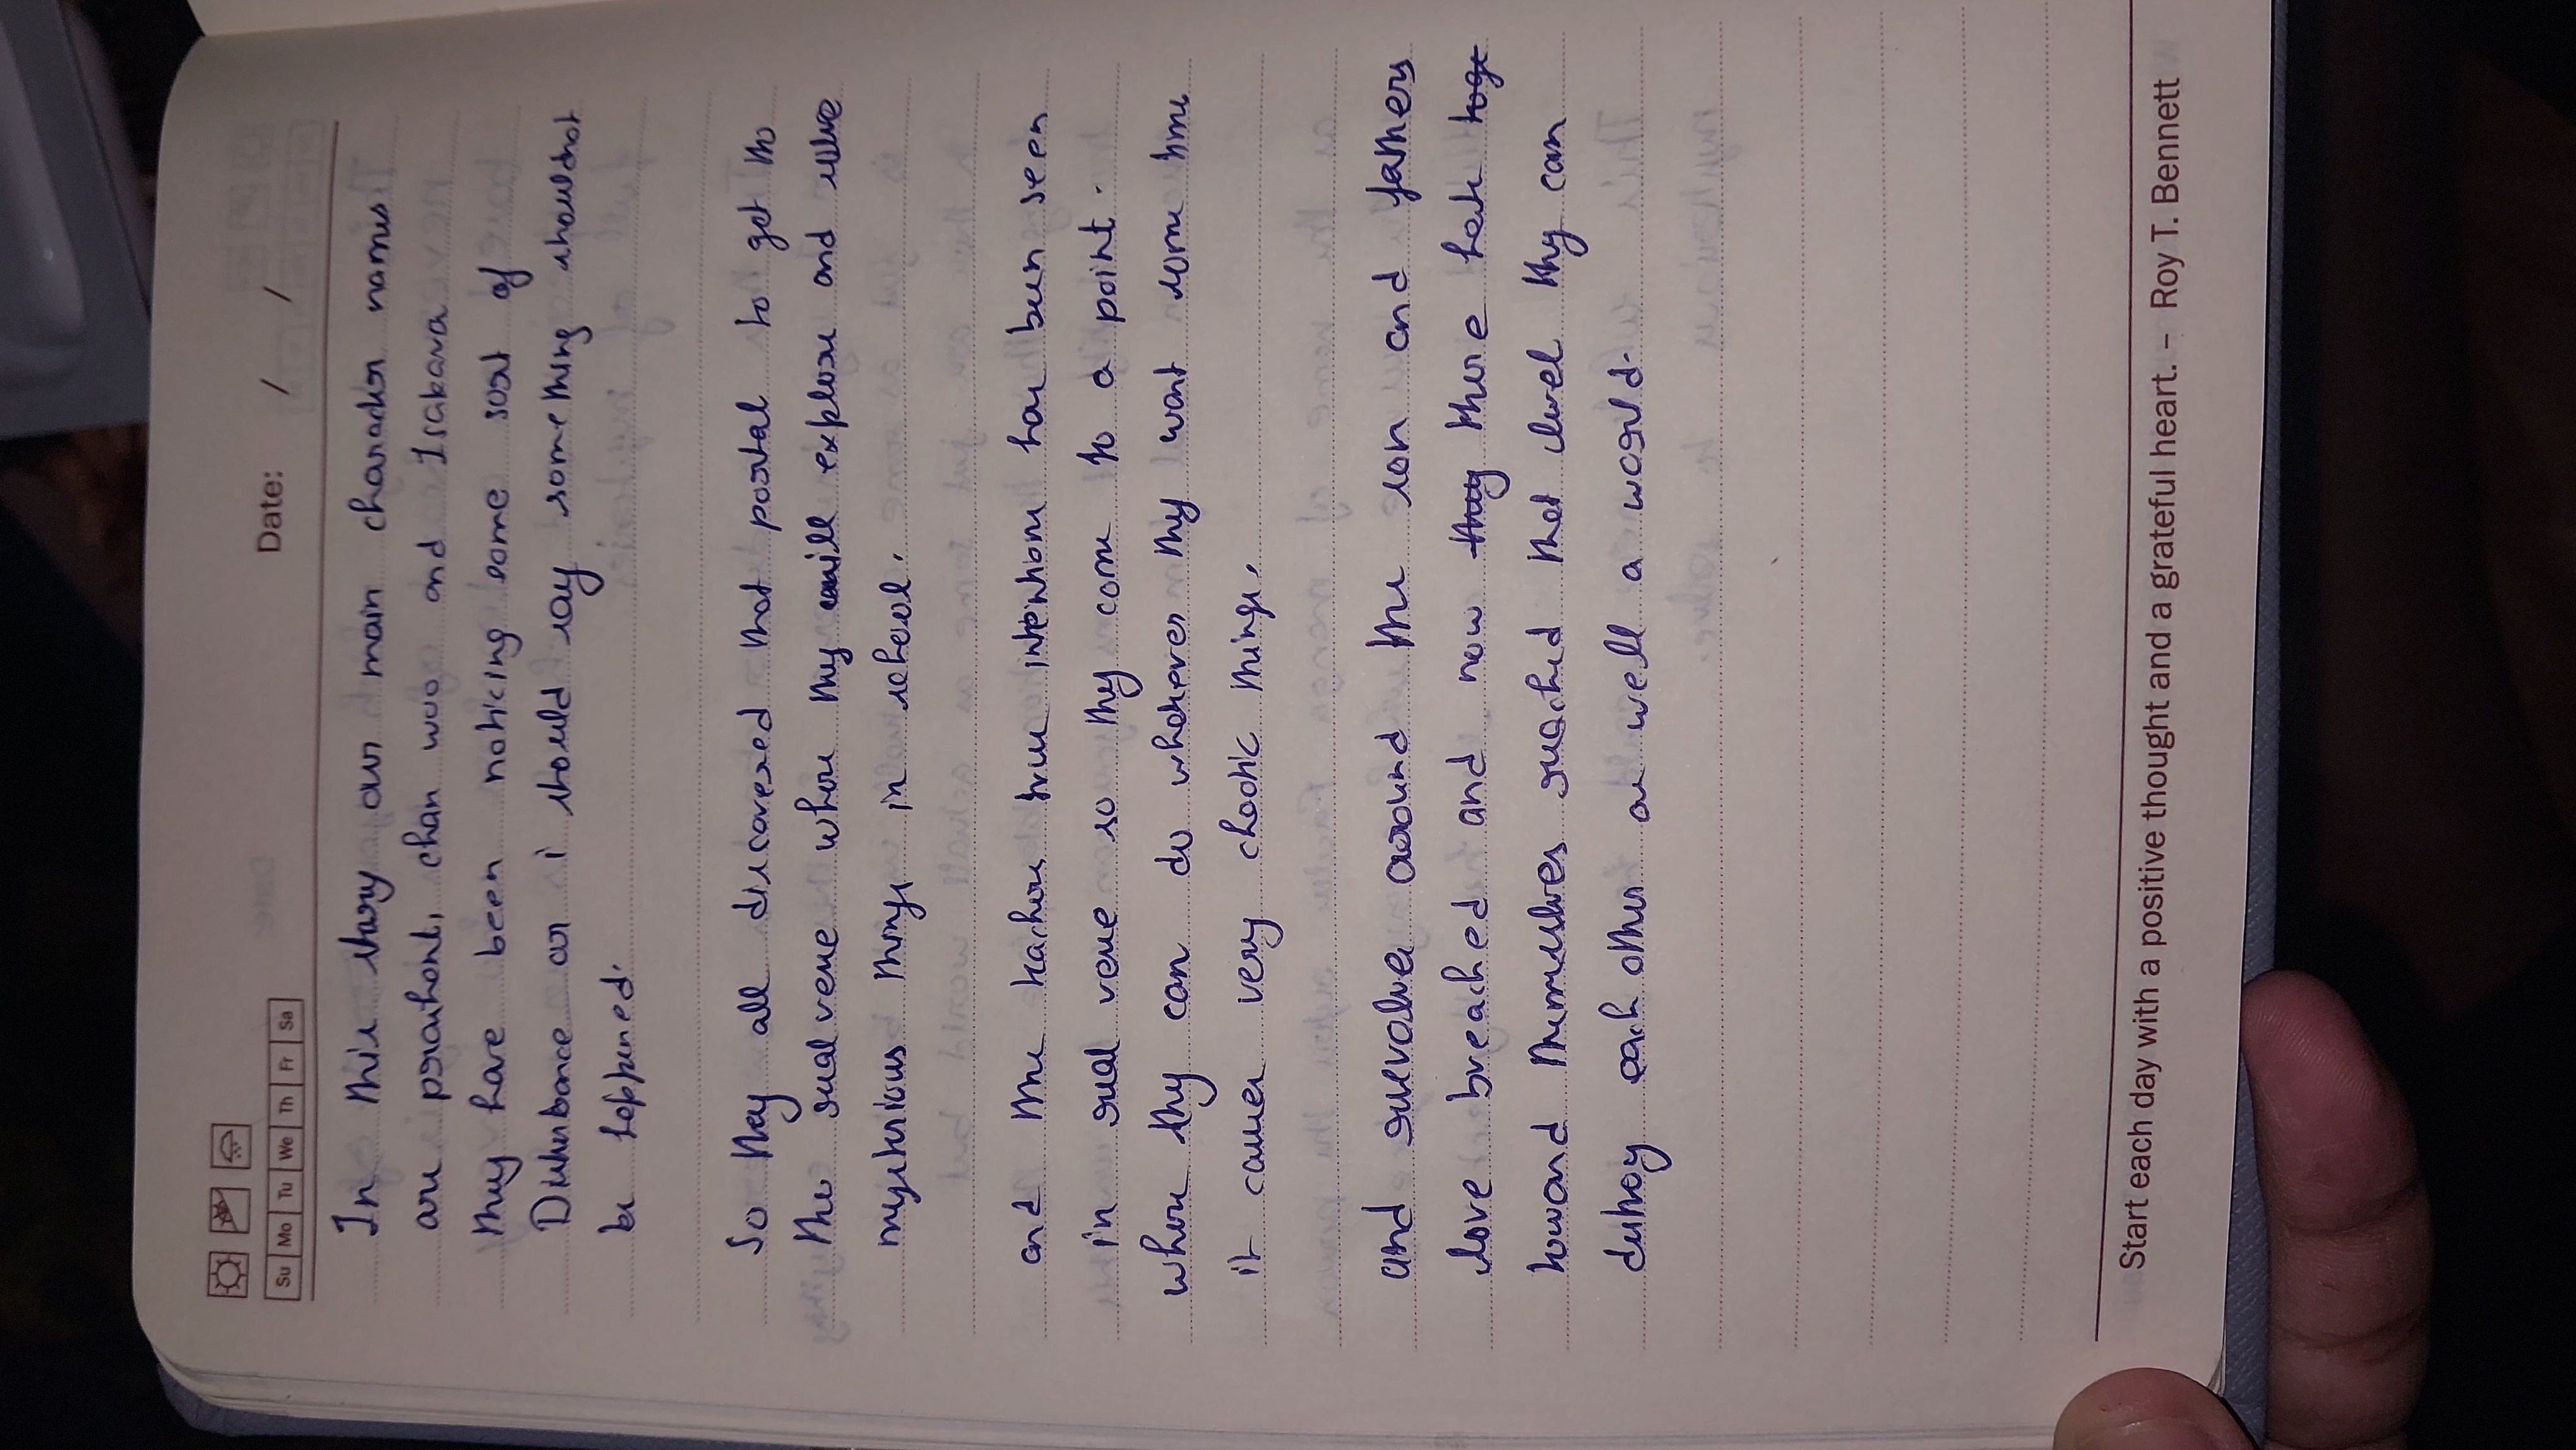 Su Mo Tu We Th Fr Sa
Date: / /
In this story our main character names
are prashant, chan woo and Isakava
they have been noticing some sort of
Disturbance or i should say something shouldnot
be happened.
So they all discovered that portal to get to
the realverse where they will explore and solve
mysterious things in school.
and the teachers true intentions has been seen
in real verse so they come to a point.
where they can do whatever they want some time
it causes very chaotic things.
and revolves around the son and fathers
love breached and now there hate
toward themselves reached that level they can
destroy each other as well a world.
Start each day with a positive thought and a grateful heart. – Roy T. Bennett